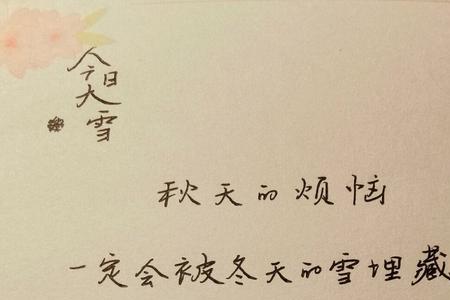 今日大雪
秋天的烦恼
一定会被冬天的雪埋藏